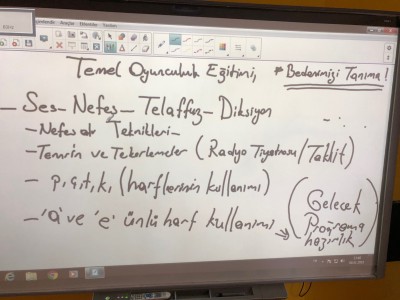 Temel Oyunculuk Eğitimi, * Bedenimizi Tanıma!
- Ses - Nefes - Telaffuz - Diksiyon
- Nefes ak Teknikleri -
- Temrin ve Tekerlemeler (Radyo Tiyatrosu / Taklit)
- p, ç, t, k, (harflerinin kullanımı)
- 'a' ve 'e' ünlü harf kullanımı
(Gelecek
Programa
hazırlık)